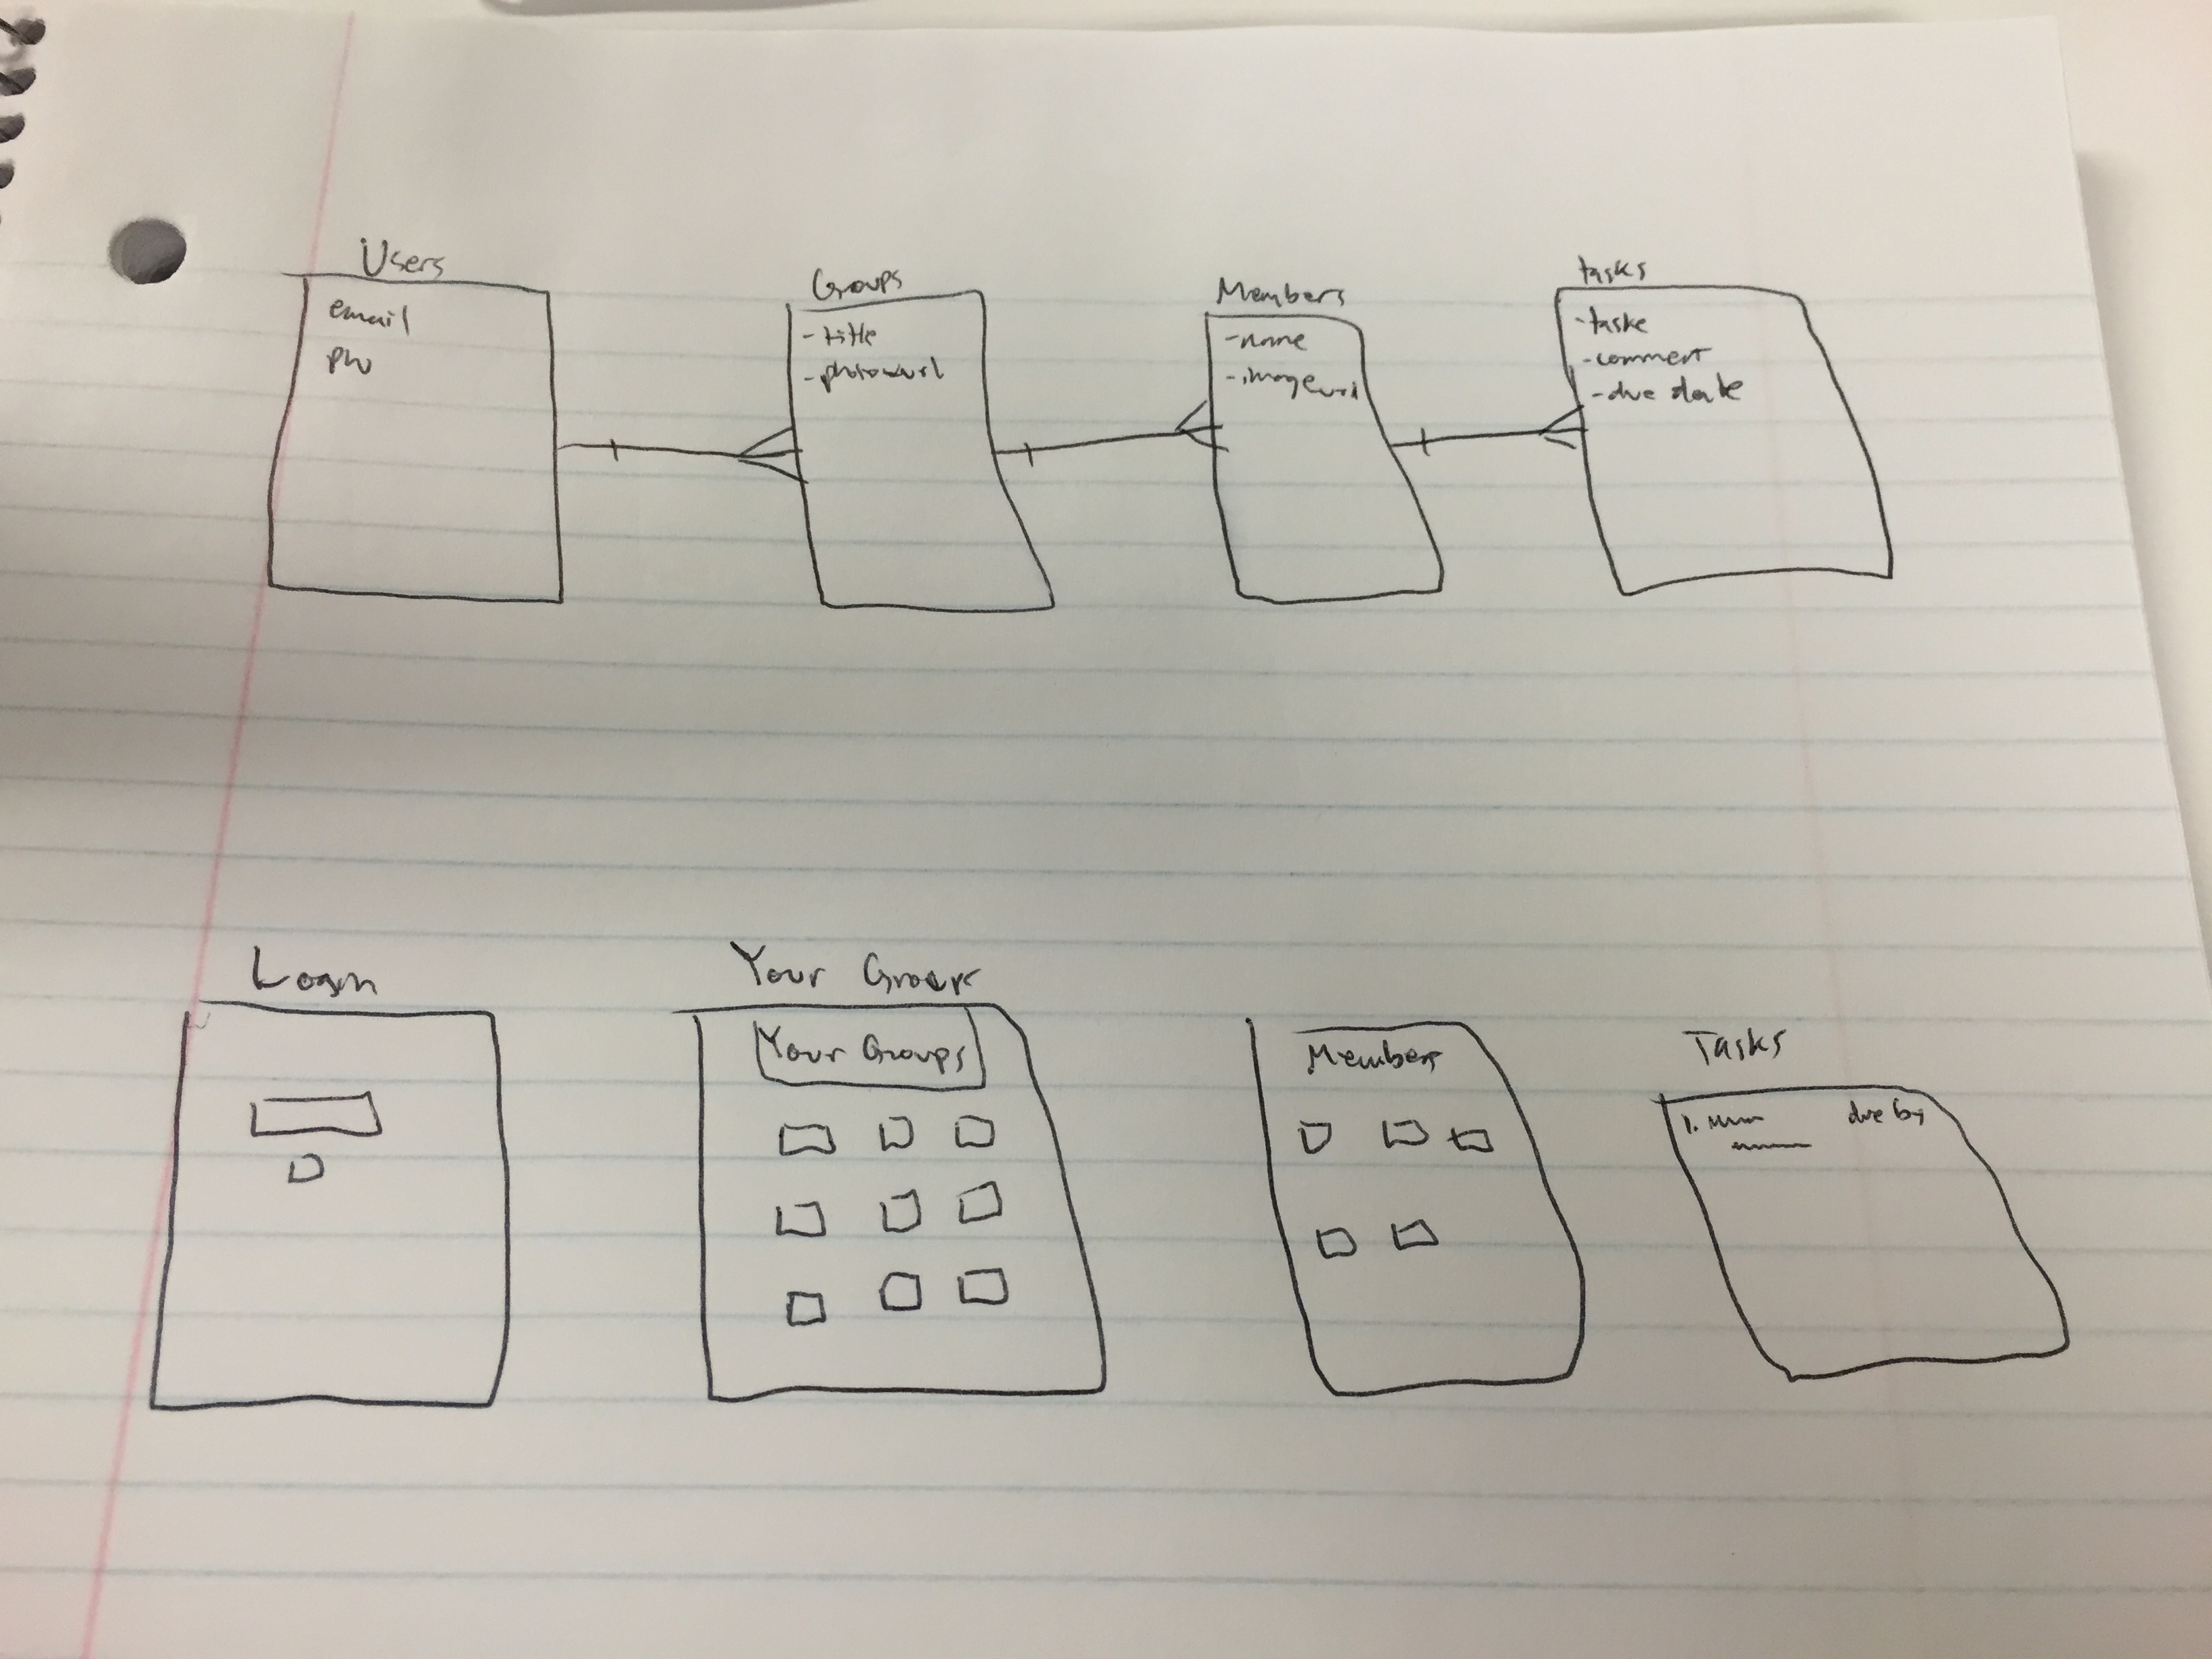 Users
email
pw
Groups
- title
- photo url
Members
- name
- image url
tasks
- taske
- comment
- due date
Login
Your Group
Your Groups
Members
Tasks
1. due by